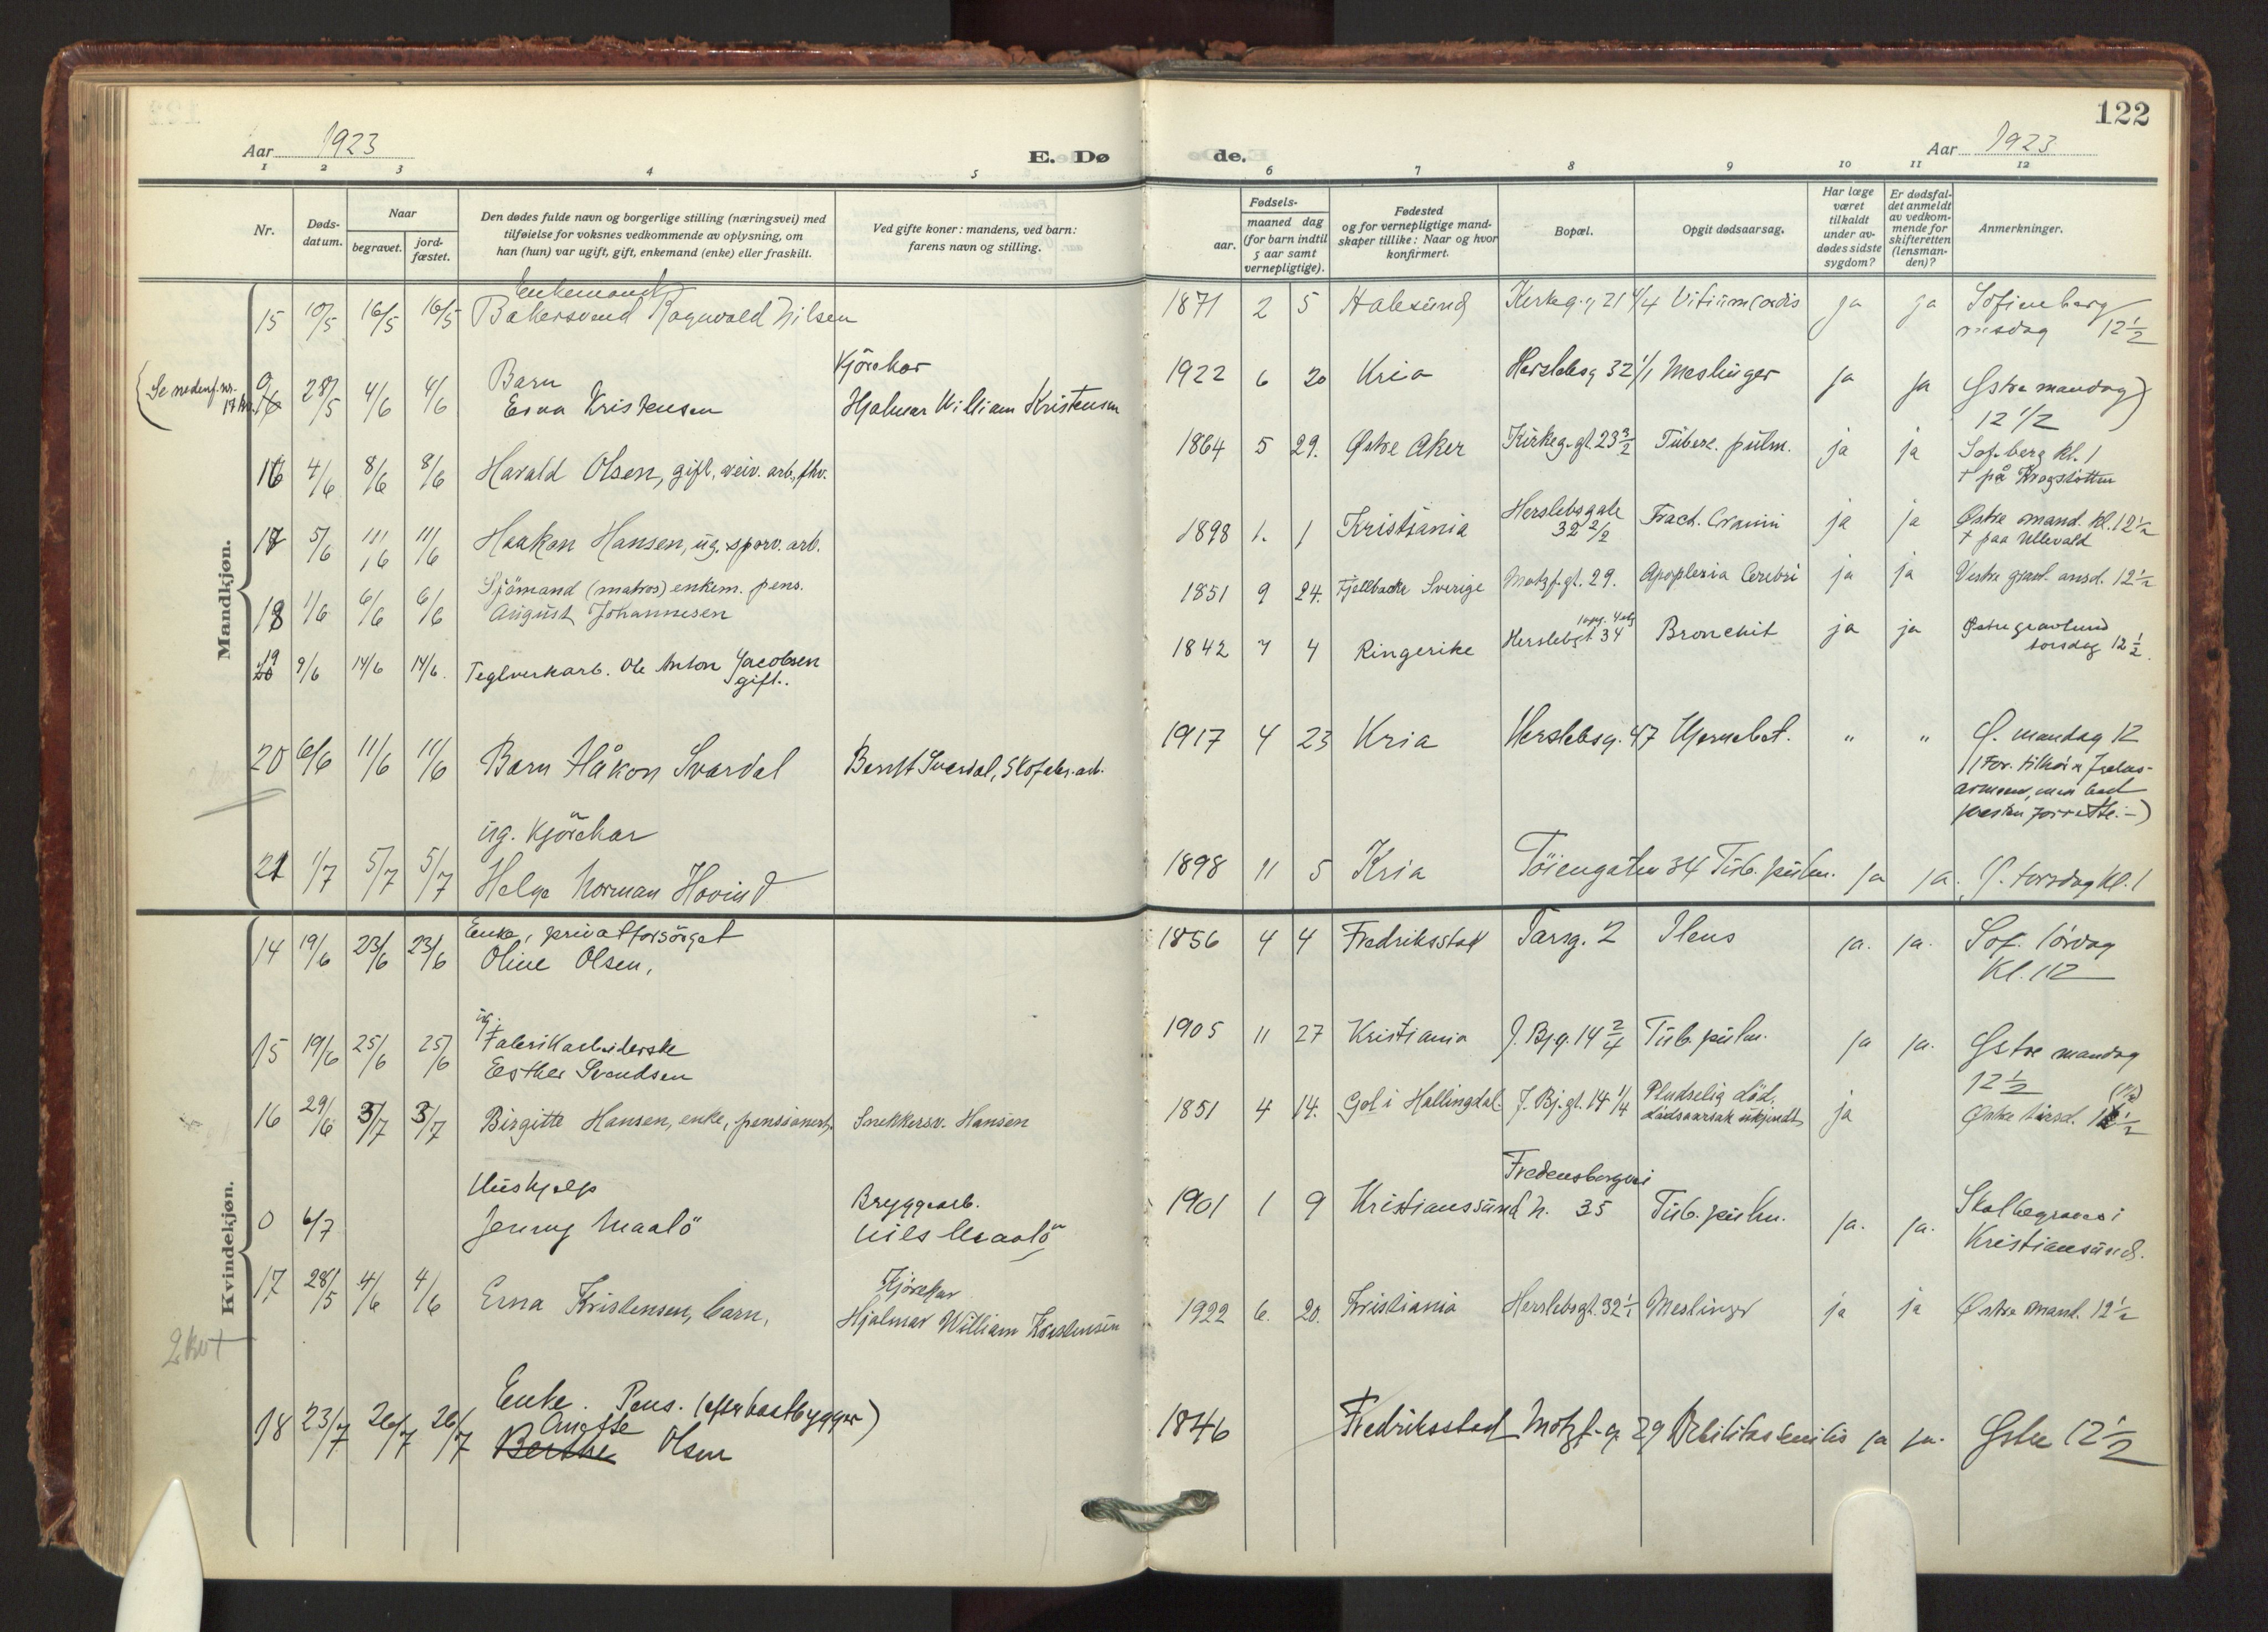 122
Aar 1923
E. Dø
de.
Aar 1923
1 2 3 4 5 6 7 8 9 10 11 12
Nr.
Døds-
datum.
Naar
begravet.
jord-
fæstet.
Den dødes fulde navn og borgerlige stilling (næringsvei) med
tilføielse for voksnes vedkommende av oplysning, om
han (hun) var ugift, gift, enkemand (enke) eller fraskilt.
Ved gifte koner: mandens, ved barn:
farens navn og stilling.
Fødsels-
aar.
maaned dag
(for barn indtil
5 aar samt
vernepligtige).
Fødested
og for vernepligtige mand-
skaper tillike: Naar og hvor
konfirmert.
Bopæl.
Opgit dødsaarsag.
Har læge
været
tilkaldt
under av-
dødes sidste
sygdom?
Er dødsfal-
det anmeldt
av vedkom-
mende for
skifteretten
(lensman-
den)?
Anmerkninger.
Mandkjøn.
Enkemand
15 10/5 16/5 16/5 Bakersvend Ragnvald Nilsen 1871 2 5 Halesund Kirkeg. 21 4/4 Vitium Cordis ja ja Sofienberg
12 1/2
(Se nedenf. nr.
17 kv.
0 28/5 4/6 4/6 Barn
Erna Kristensen
Kjørekar
Hjalmar William Kristensen 1922 6 20 Kria Herslebsg 32 1/1 Meslinger ja ja Østre mandag)
12 1/2
16 4/6 8/6 8/6 Harald Olsen, gift, veiv. arb., fhv. 1864 5 29. Østre Aker Kirkeg. gt. 23 3/2 Tuberc. pulm. ja ja Sof. berg kl. 1
† på Krogstøtten
17 5/6 11/6 11/6 Haakon Hansen, ug. sporv. arb. 1898 1. 1 Kristiania Herslebsgate
32 2/2 Fract. Cranii ja ja Østre mand. kl. 12 1/2
† paa Ullevål
18 1/6 6/6 6/6 Sjömand (matros) enkem. pens.
August Johannesen 1851 9 24. Fjellbacka Sverige Motzf. gt. 29. Apoplexia Cerebri ja ja Vestre gravl. onsd. 12 1/2
19 9/6 14/6 14/6. Teglverkarb. Ole Anton Jacobsen
gift. 1842 7 4 Ringerike Herslebgt 34 Bronchit ja ja Østre gravlund
torsdag 12 1/2.
20 6/6 11/6 11/6 Barn Håkon Svardal Berndt Svardal, Skofabr. arb. 1917 4 23 Kria Herslebsg. 47 Hjernebet. " " Ø. mandag 12
(For. tilhører Frelses-
armeen, men bad
presten forrette.-)
21 1/7 5/7 5/7 ug. Kjörekar
Helge Norman Hovind 1898 11 5 Kria Töiengaten 34 Tub. pulm. ja ja. Ø. torsdag kl. 1
Kvindekjøn.
14 19/6 23/6 23/6 Enke, privat forsörget
Oline Olsen, 1856 4 4 Fredriksstad Torsg. 2 Ileus ja. ja. Sof. lördag
Kl. 112
15 19/6 25/6 25/6 ug.
Fabrikarbeiderske
Esther Svendsen 1905 11 27 Kristiania J. Bj.g. 14 2/4 Tub. pulm. ja ja. Østre mandag
12 1/2
16 29/6 3/7 3/7 Birgitte Hansen, enke, pensionert, Snekkersv. Hansen 1851 4 14. Gol i Hallingdal. J. Bj. gt. 14 1/4 Pludselig död,
dödsaarsak ukjendt ja Østre tirsd. 1/2
0 6/7 Hushjelp
Jenny Maalö
Bryggearb.
Nils Maalö 1901 1 9 Kristianssund N. Fredensborgvei
35 Tub. pulm. ja. ja. Skal begraves i
Kristiansund.
17 28/5 4/6 4/6 Erna Kristensen, barn, Kjørekar
Hjalmar William Kristensen 1922 6. 20. Kristiania Herslebsgt. 32 1/1 Meslinger ja ja Østre mand. 12 1/2
18 23/7 26/7 26/7 Enke. Pens. (efter baatbygger)
Anette
Berthe Olsen 1846 Fredriksstad Motzf.g. 29 Debilitas senilis ja ja. Østre 12 1/2